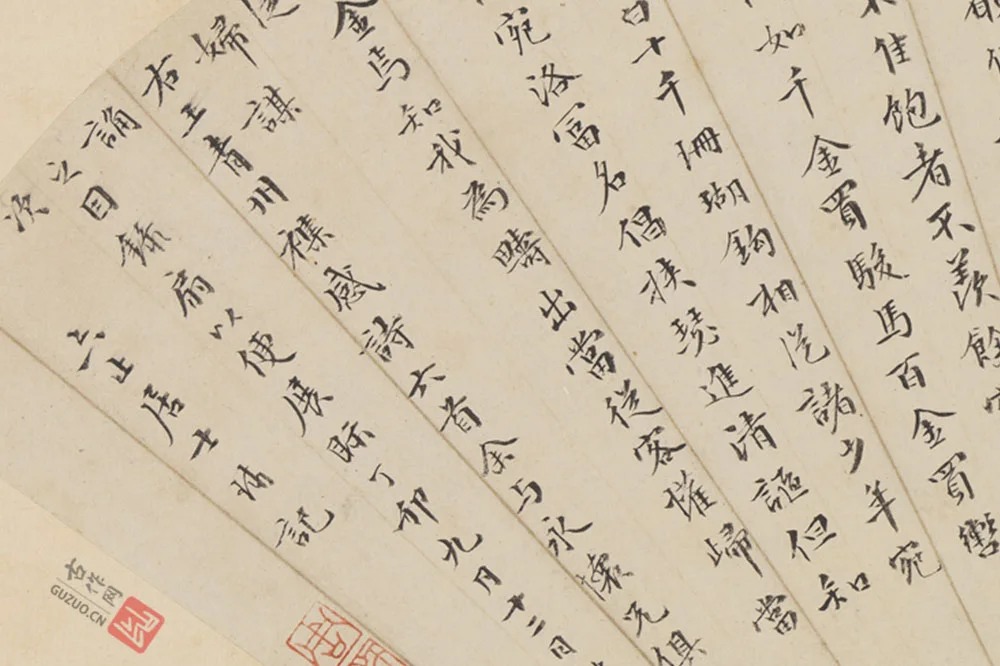 不佳飽者不羨餘
如千金買駿馬百金買轡
日十千珊瑚鈎相從諸少年宛
宛洛富名倡挾瑟進清謳但知
金馬知我為疇出當從客催歸當
婦謀
右王青州襍感詩六首余与永懷兄俱
誦之目錄扇以便展眎丁卯九月十二日
次
六止居士 記
古作网
GUZUO.CN